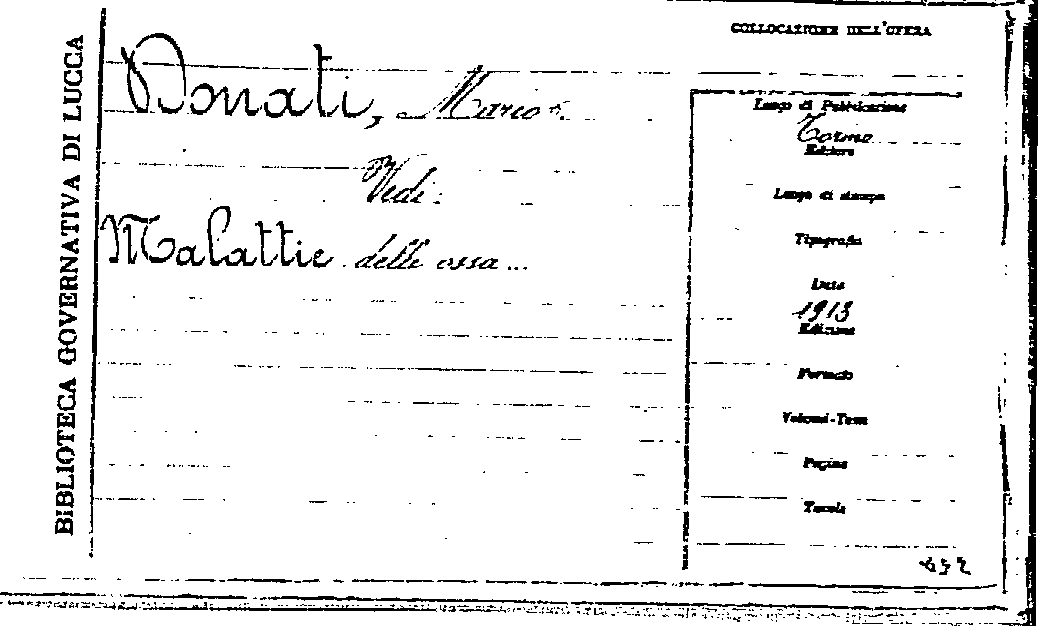 BIBLIOTECA GOVERNATIVA DI LUCCA
Donati, Mario
Vedi:
Malattie delle ossa...
COLLOCAZIONE DELL'OPERA
Luogo di Pubblicazione
Torino
Editore
Luogo di stampa
Tipografia
Data
1913
Edizione
Formato
Volumi-Tomi
Pagine
Tavole